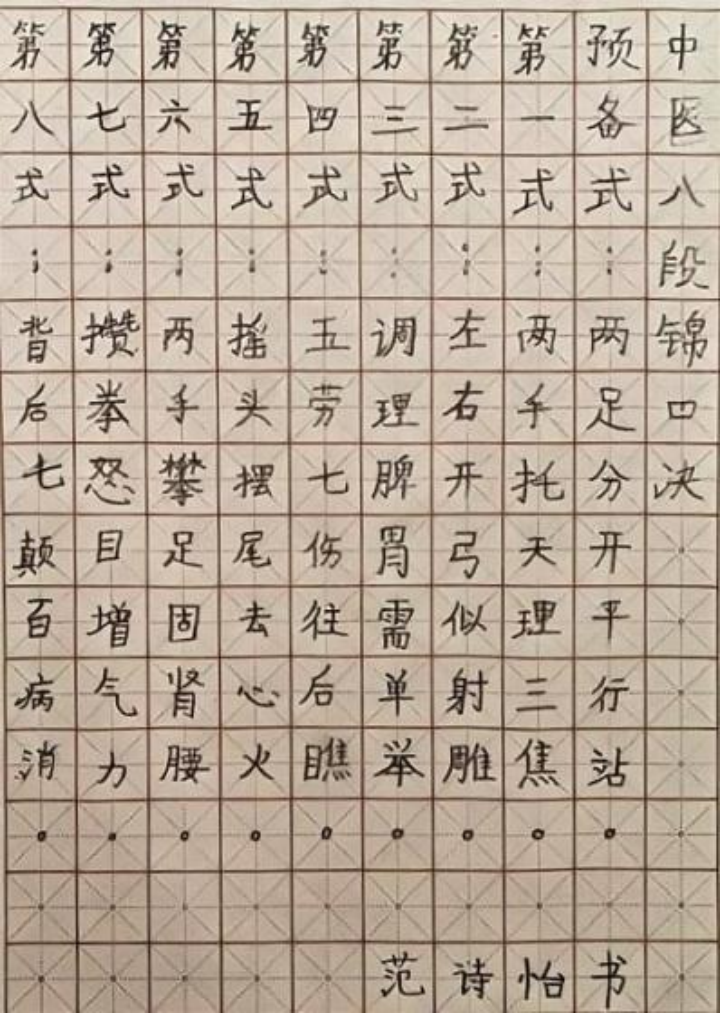 中医八段锦口决
预备式：两足分开平行站。
第一式：两手托天理三焦。
第二式：左右开弓似射雕。
第三式：调理脾胃需单举。
第四式：五劳七伤往后瞧。
第五式：摇头摆尾去心火。
第六式：两手攀足固肾腰。
第七式：攒拳怒目增气力。
第八式：背后七颠百病消。
范诗怡书